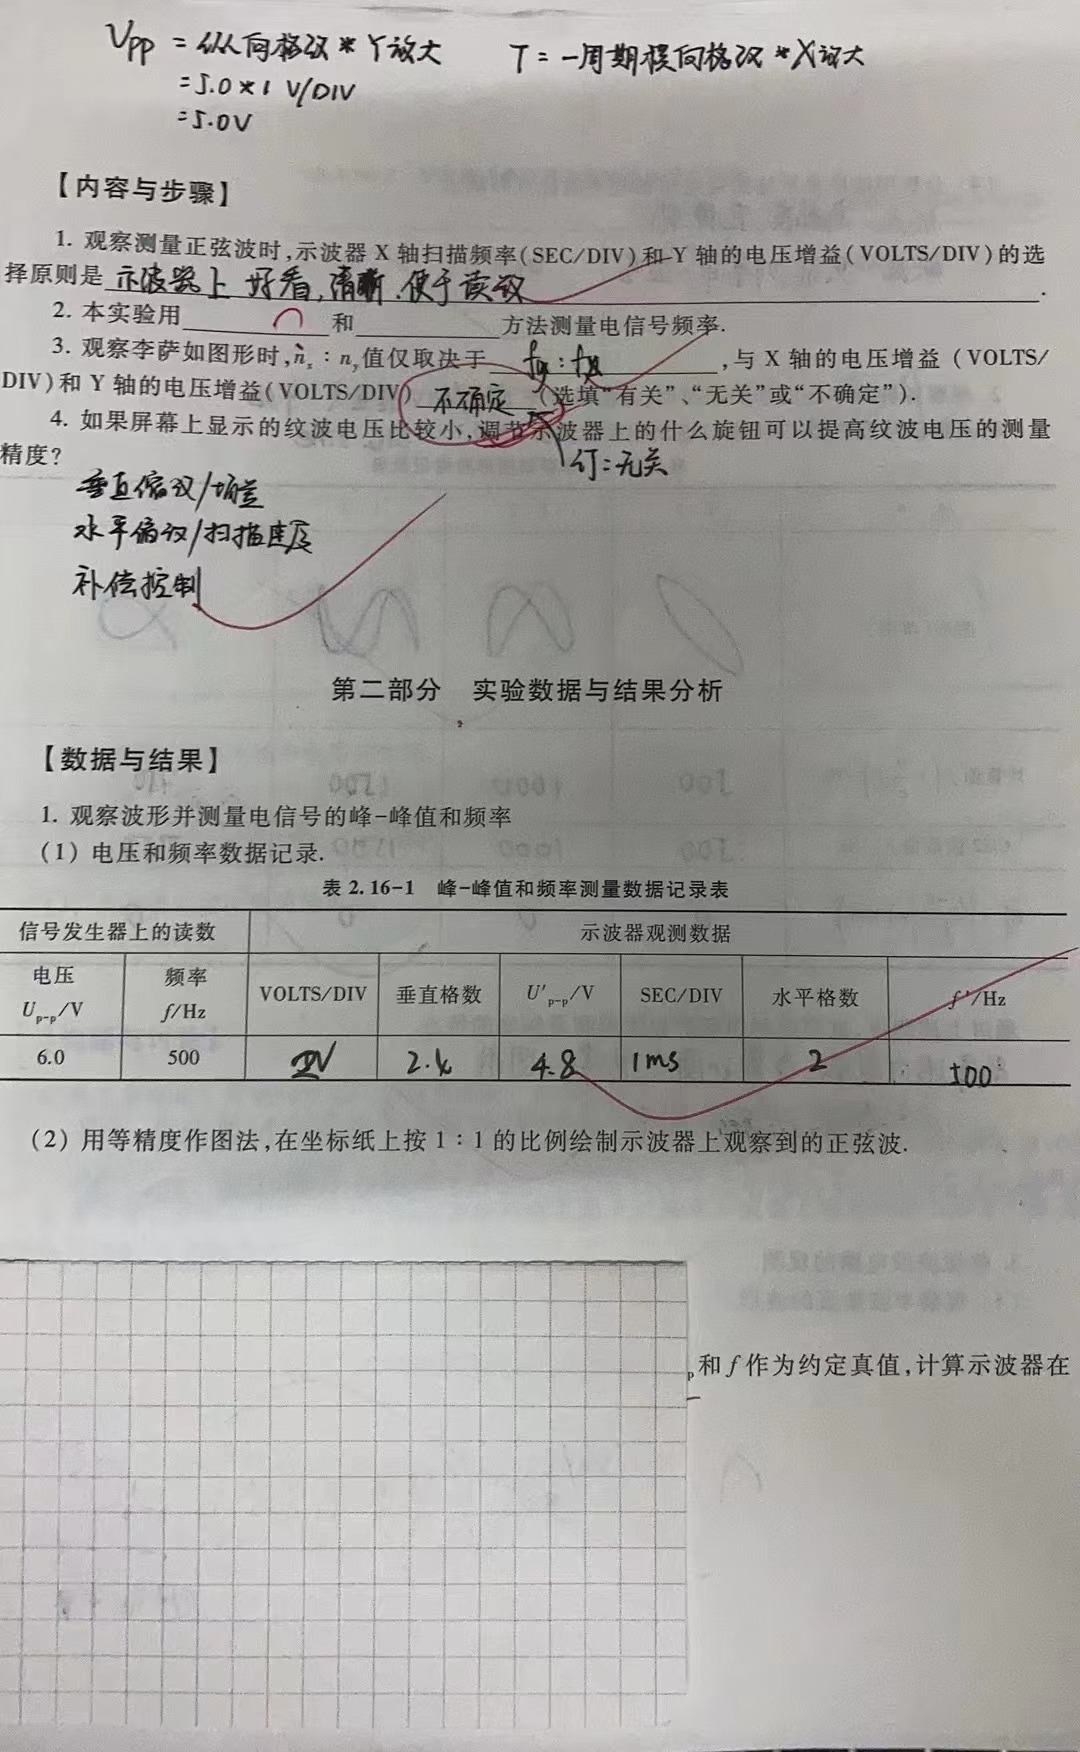 Vpp = 纵向格数 * Y放大 T = 一周期横向格数 * X放大
= 5.0 * 1 V/DIV
= 5.0V
【内容与步骤】
1. 观察测量正弦波时,示波器 X 轴扫描频率(SEC/DIV)和 Y 轴的电压增益(VOLTS/DIV)的选
择原则是 示波器上好看,清晰.便于读数 .
2. 本实验用 和 方法测量电信号频率.
3. 观察李萨如图形时,nx : ny值仅取决于 fy : fx ,与 X 轴的电压增益 (VOLTS/
DIV)和 Y 轴的电压增益(VOLTS/DIV) 不确定 (选填“有关”、“无关”或“不确定”).
4. 如果屏幕上显示的纹波电压比较小,调节示波器上的什么旋钮可以提高纹波电压的测量
精度?
订:无关
垂直偏议/增益
水平偏议/扫描速度
补偿控制
第二部分 实验数据与结果分析
【数据与结果】
1. 观察波形并测量电信号的峰-峰值和频率
(1) 电压和频率数据记录.
表 2.16-1 峰-峰值和频率测量数据记录表
信号发生器上的读数 示波器观测数据
电压 Up-p/V 频率 f/Hz VOLTS/DIV 垂直格数 U′p-p/V SEC/DIV 水平格数 f′/Hz
6.0 500 2V 2.4 4.8 1ms 2 500
(2) 用等精度作图法,在坐标纸上按 1 : 1 的比例绘制示波器上观察到的正弦波.
p 和 f 作为约定真值,计算示波器在